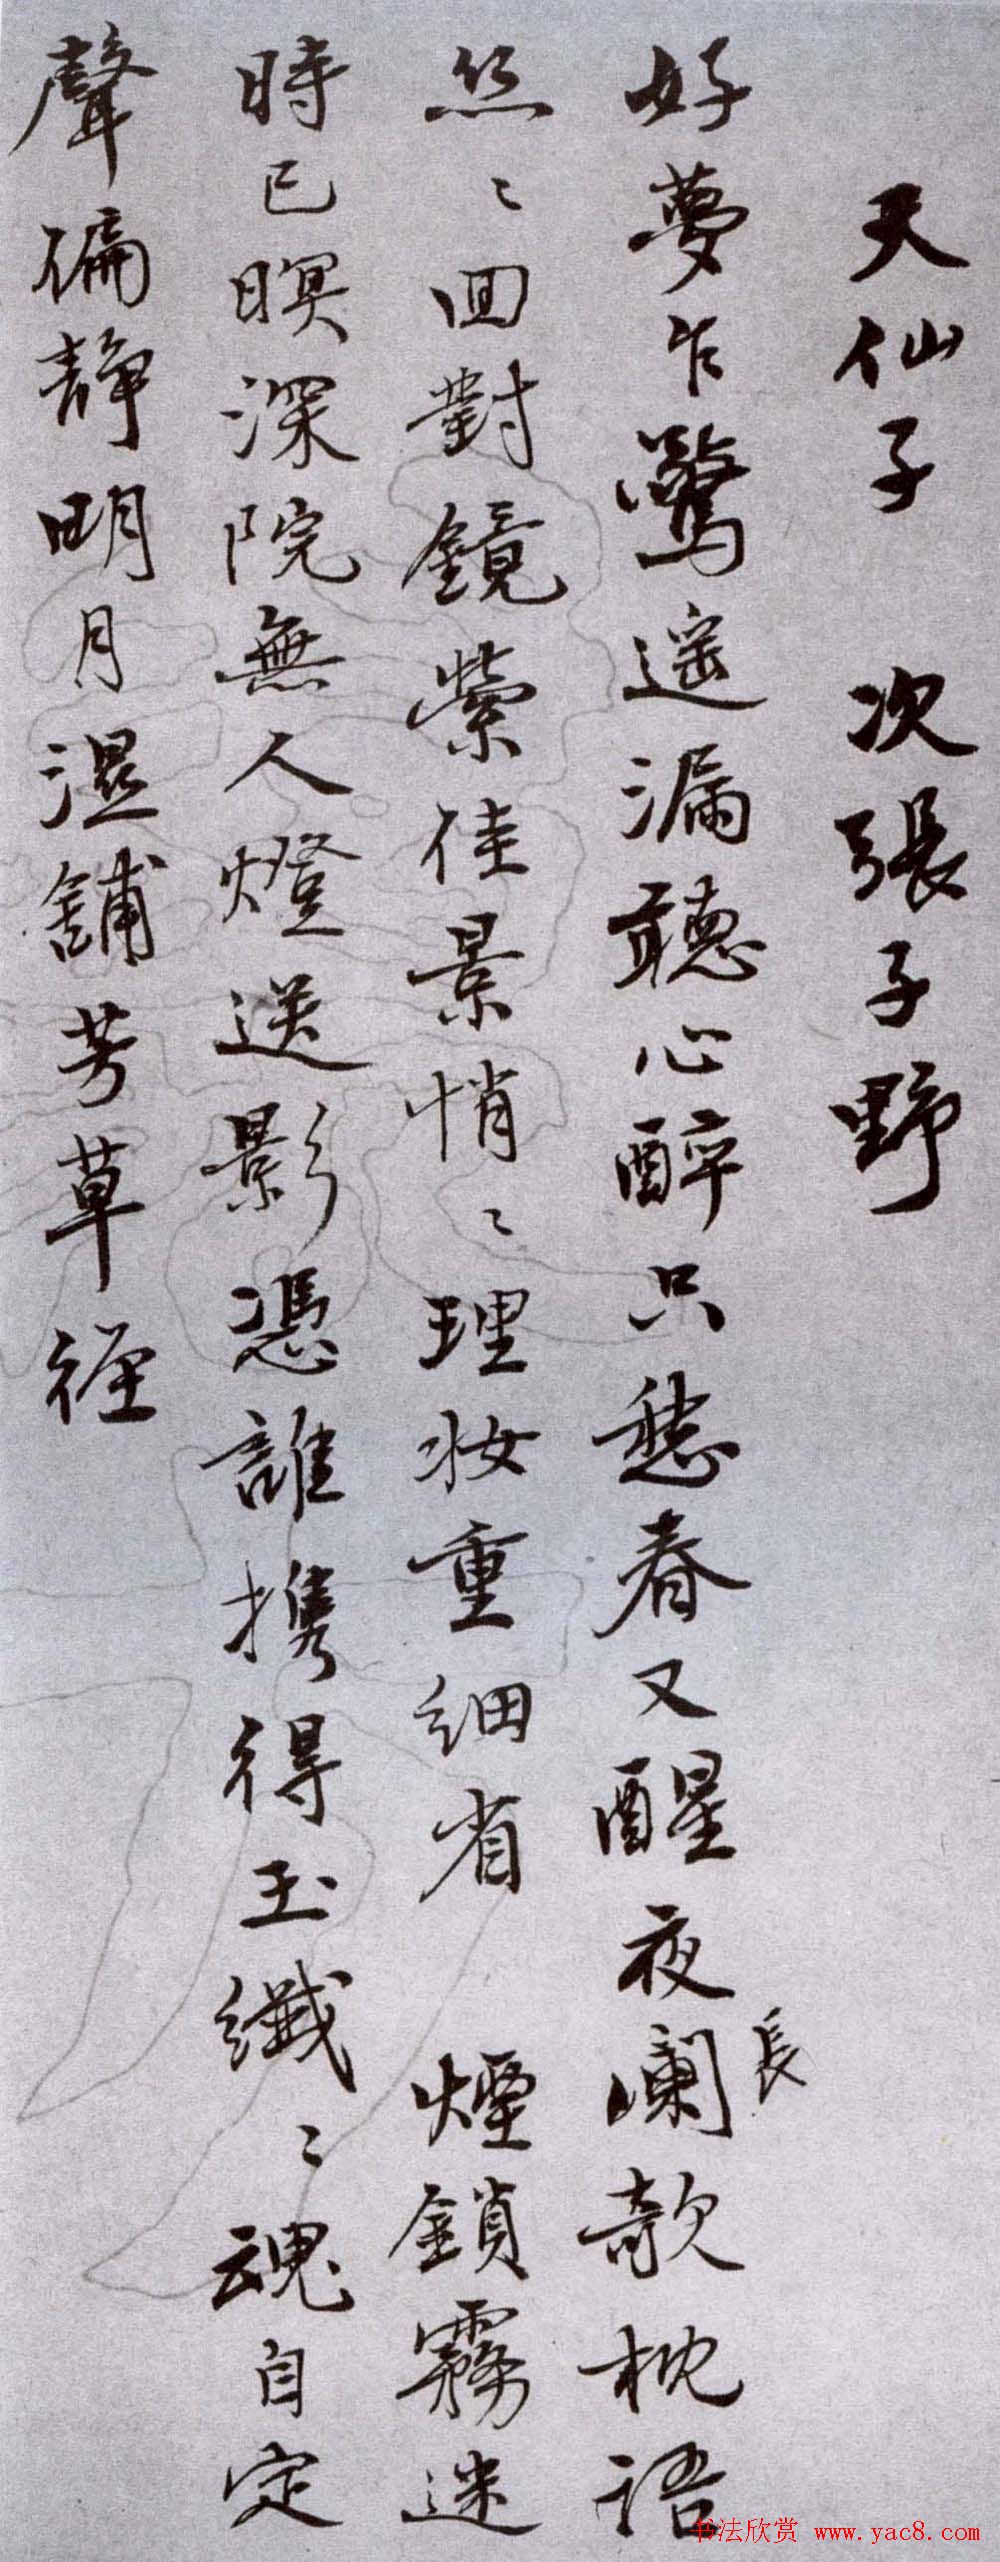 天仙子 次張子野
好夢乍驚遥漏聽心醉只愁春又醒夜瀾欹枕語
長
丝〻回對鏡縈佳景悄〻理妆重細省 煙鎖霧迷
時已暝深院無人燈送影憑誰携得玉纖〻魂自定
聲偏静明月濕舖芳草徑
书法欣赏 www.yac8.com